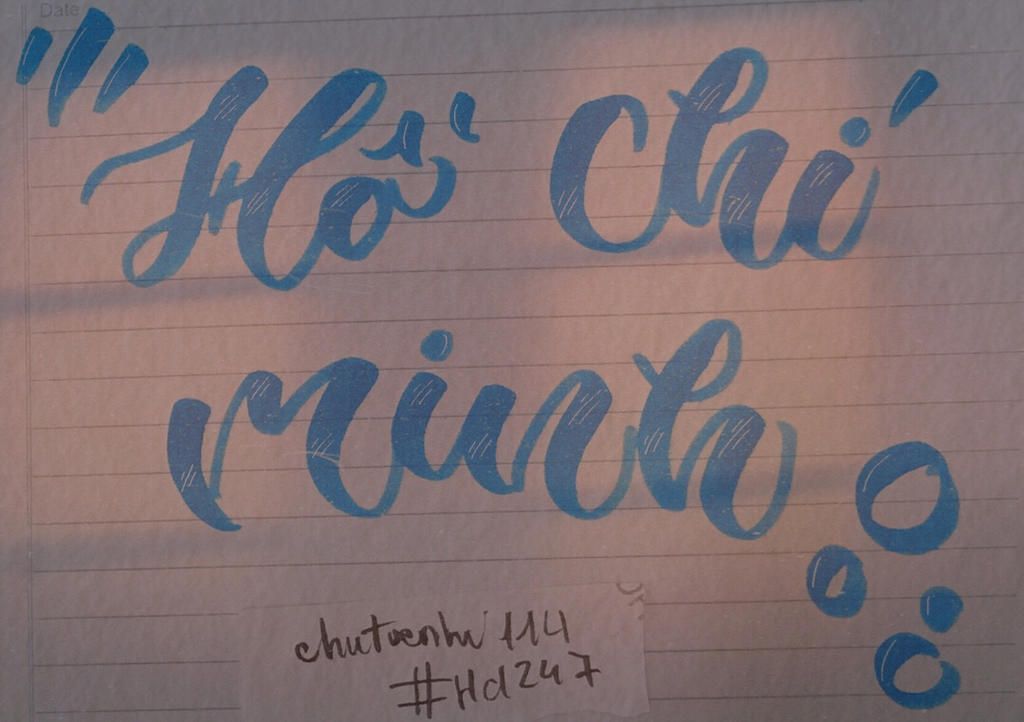 Date
Hồ Chí
minh
114
#Hd247